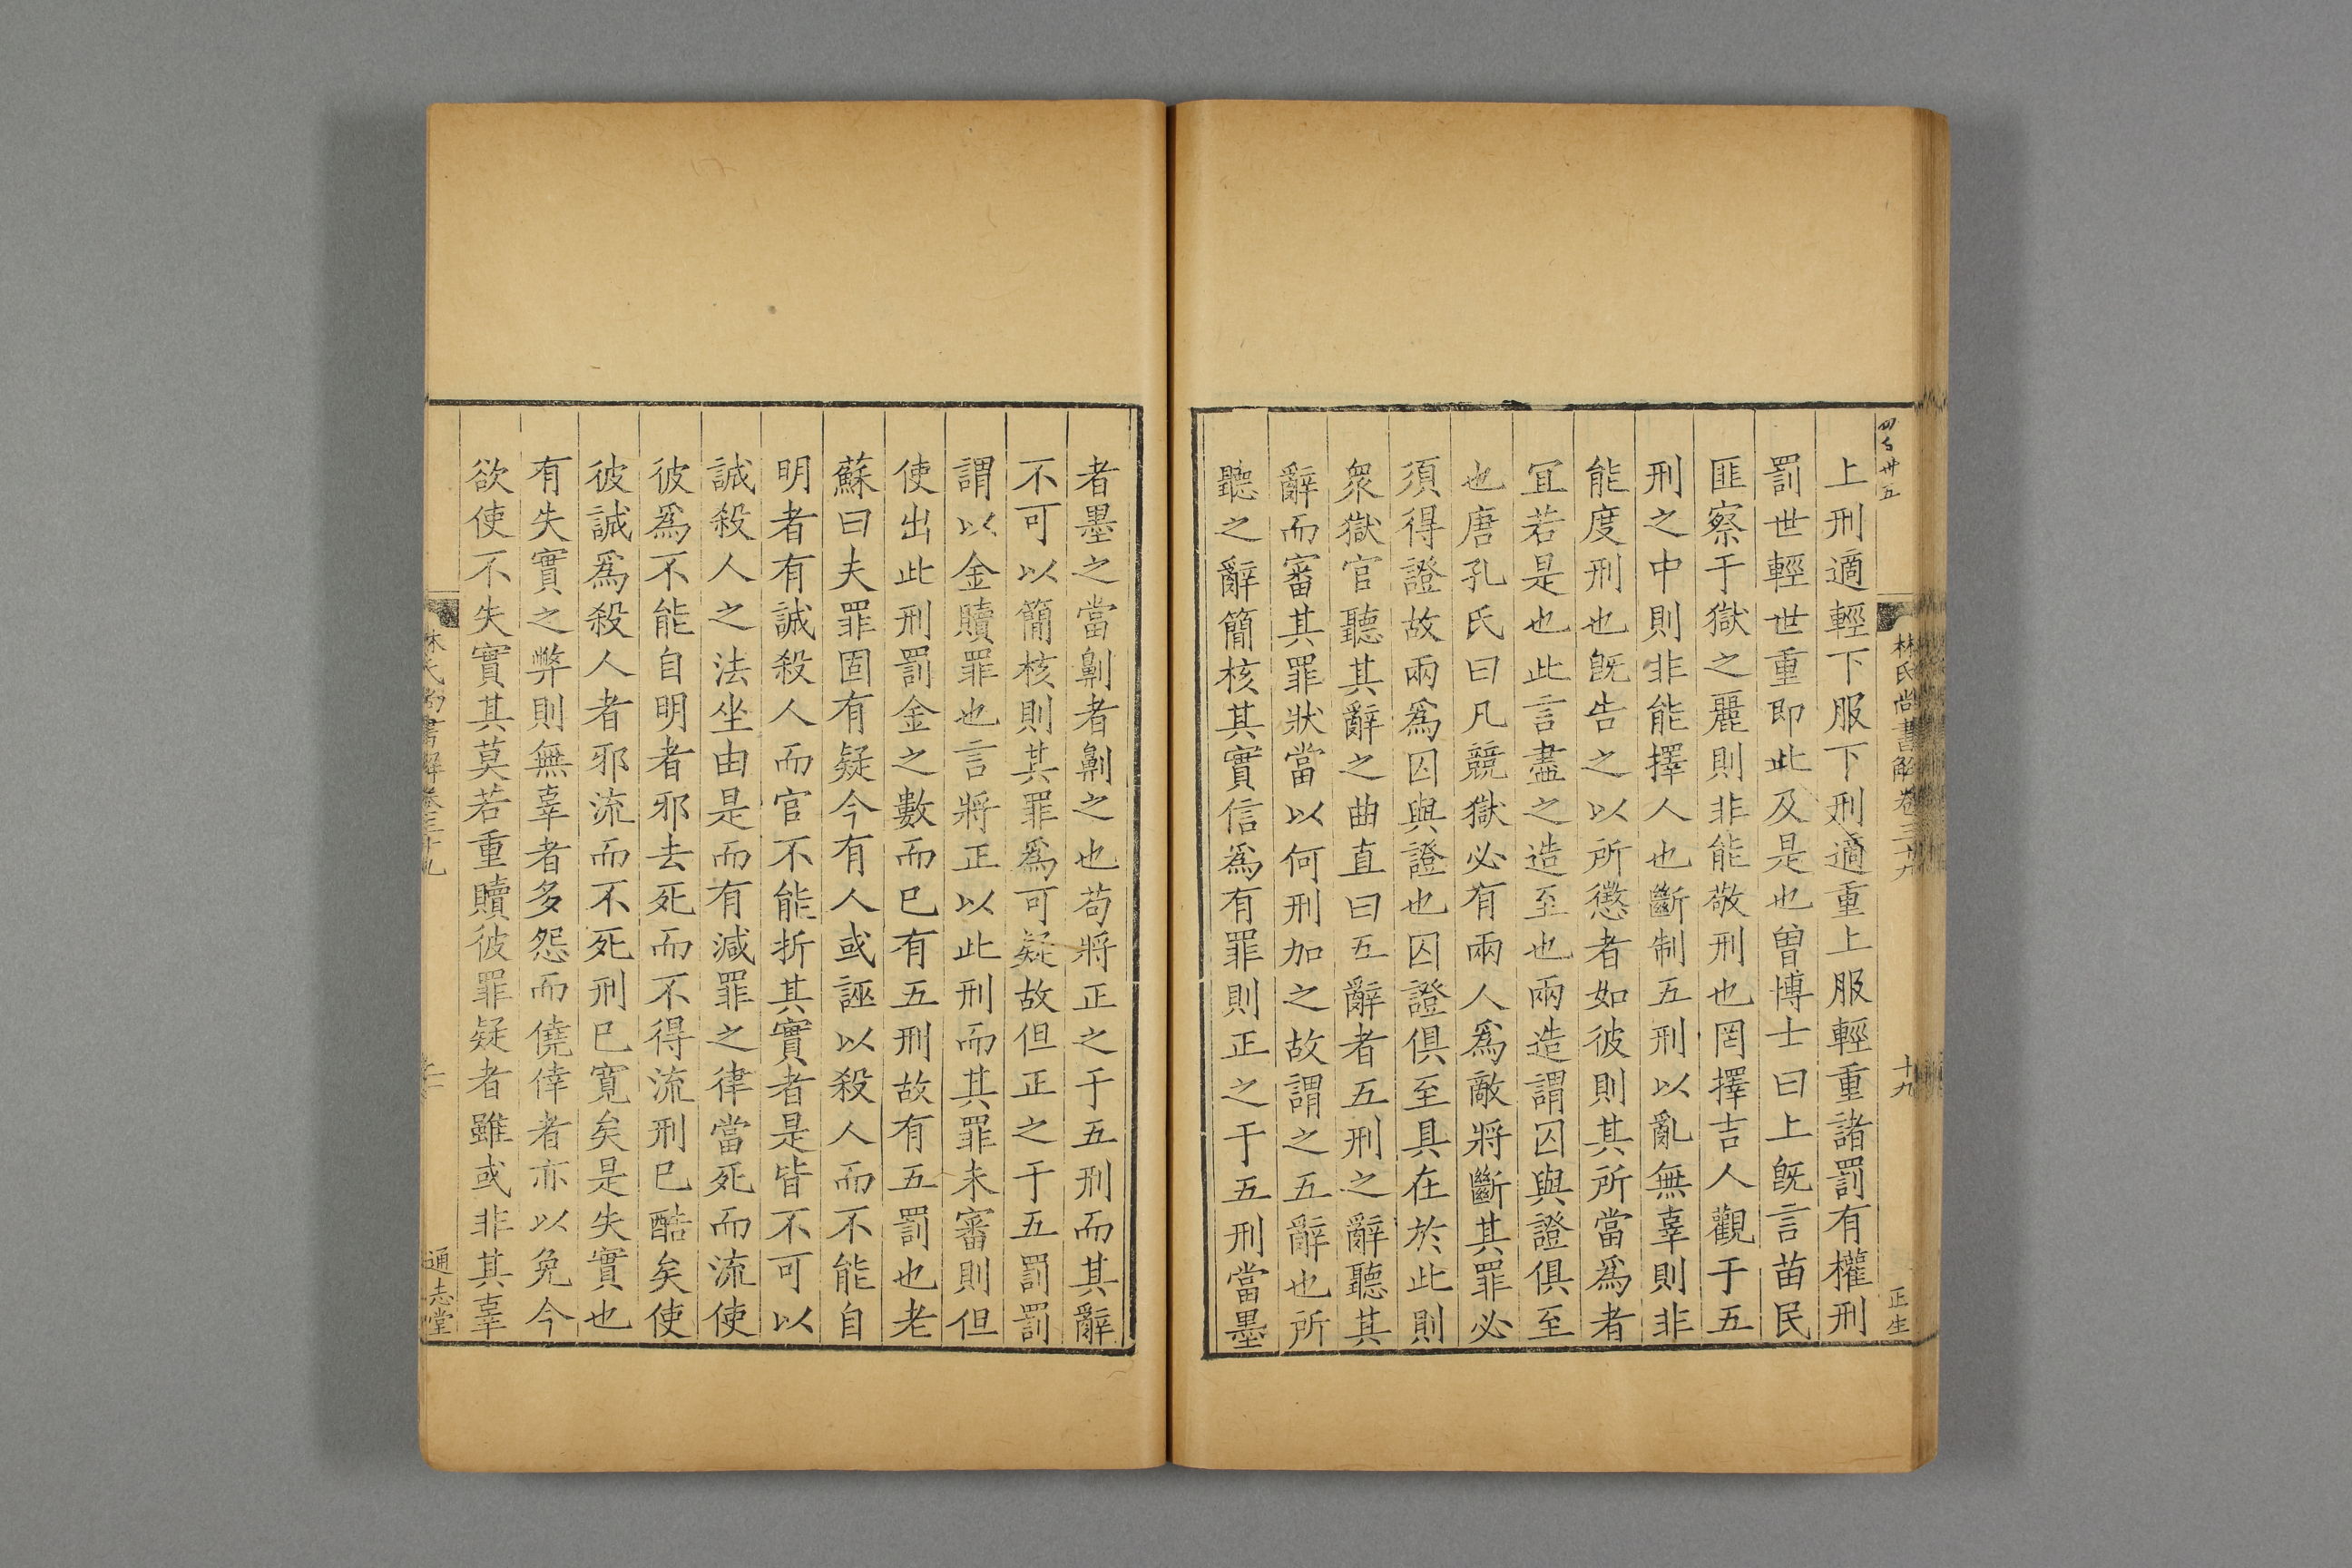 上刑適輕下服下刑適重上服輕重諸罰有權刑
罰世輕世重即此及是也曾博士曰上旣言苗民
匪察于獄之麗則非能敬刑也罔擇吉人觀于五
刑之中則非能擇人也斷制五刑以亂無辜則非
能度刑也旣告之以所懲者如彼則其所當爲者
冝若是也此言盡之造至也兩造謂囚與證俱至
也唐孔氏曰凡競獄必有兩人爲敵將斷其罪必
須得證故兩爲囚與證也囚證俱至具在於此則
衆獄官聽其辭之曲直曰五辭者五刑之辭聽其
辭而審其罪狀當以何刑加之故謂之五辭也所
聽之辭簡核其實信爲有罪則正之于五刑當墨
林氏尚書解卷三十九
十九
正生
者墨之當劓者劓之也苟將正之于五刑而其辭
不可以簡核則其罪爲可疑故但正之于五罰罰
謂以金贖罪也言將正以此刑而其罪未審則但
使出此刑罰金之數而巳有五刑故有五罰也老
蘇曰夫罪固有疑今有人或誣以殺人而不能自
明者有誠殺人而官不能折其實者是皆不可以
誠殺人之法坐由是而有減罪之律當死而流使
彼爲不能自明者邪去死而不得流刑巳酷矣使
彼誠爲殺人者邪流而不死刑巳寬矣是失實也
有失實之弊則無辜者多怨而僥倖者亦以免今
欲使不失實其莫若重贖彼罪疑者雖或非其辜
林氏尚書解卷三十九
通志堂